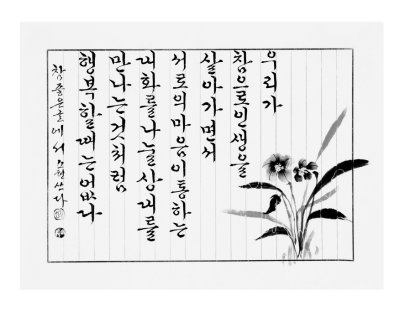 우리가
참으로 인생을
살아가면서
서로의 마음이 통하는
대화를 나눌 상대를
만나는 것처럼
행복할 때는 없다
참 좋은 글에서 쓰다